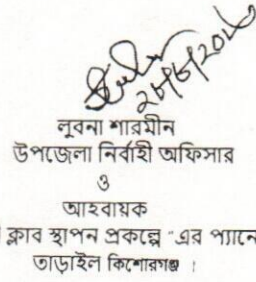 লুবনা শারমীন
উপজেলা নির্বাহী অফিসার
ও
আহবায়ক
ক্লাব স্থাপন প্রকল্পে "এর প্যানে
তাড়াইল কিশোরগঞ্জ ।